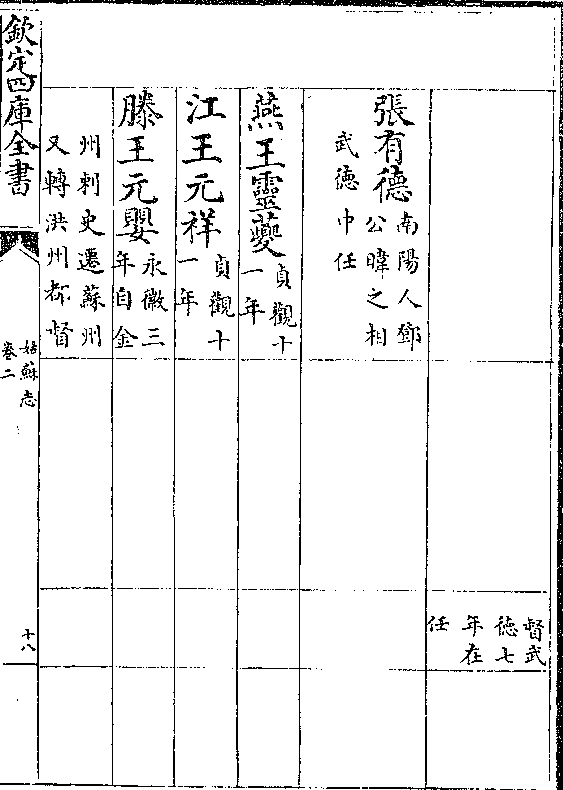 督武
德七
年在
任
張有德南陽人鄧
公暐之相
武德中任
燕王靈夔貞觀十
一年
江王元祥貞觀十
一年
滕王元嬰永徽三
年自金
州刺史遷蘇州
又轉洪州都督
欽定四庫全書
姑蘇志
卷二
十八